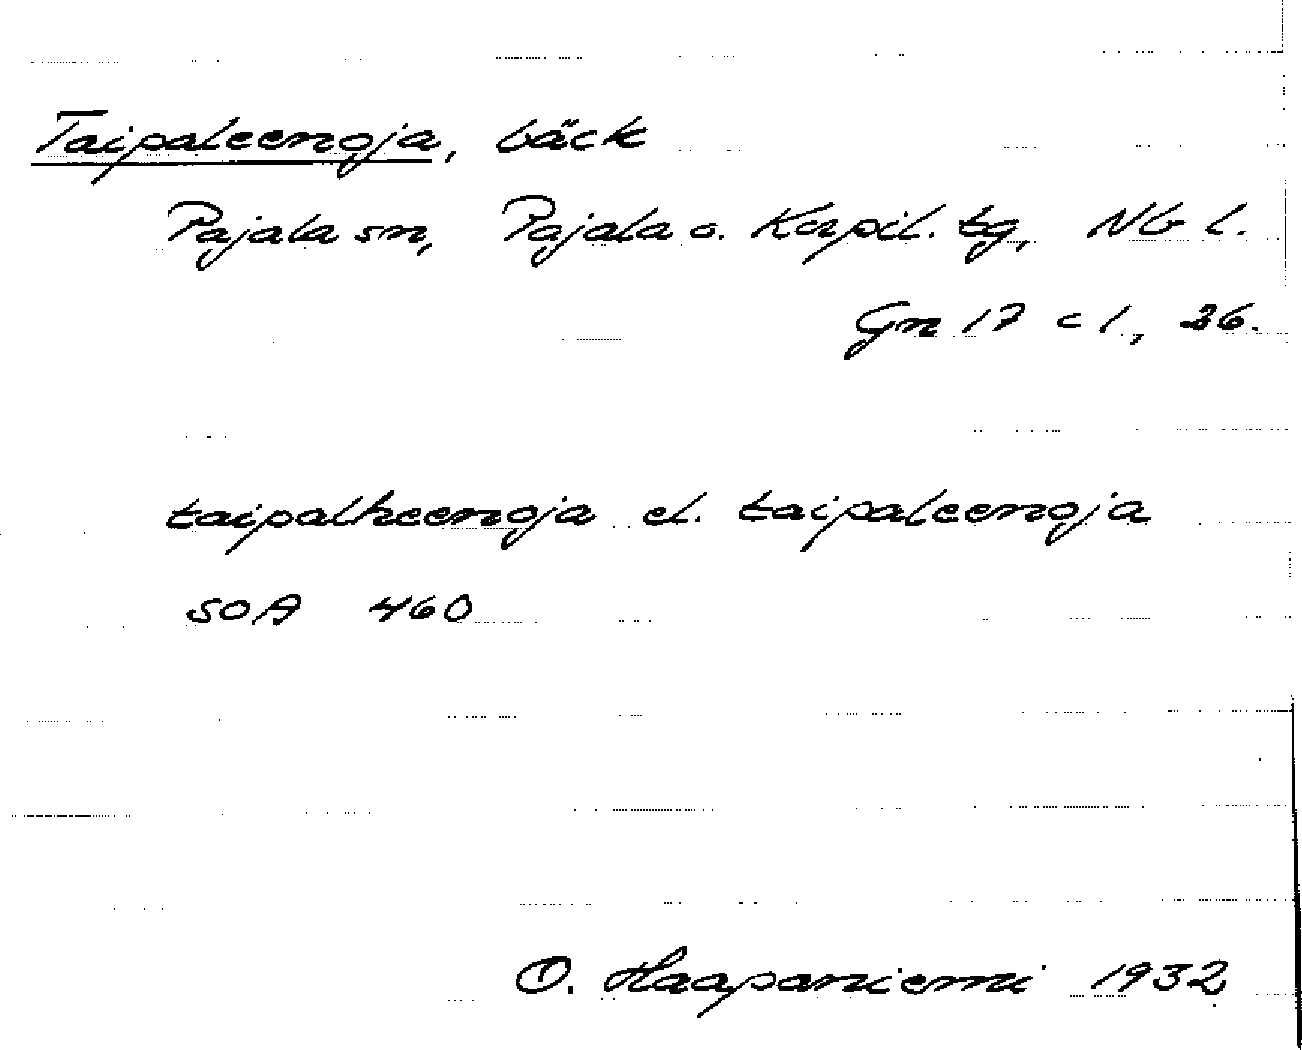 Taipaleenoja, bäck
Pajala sn, Pajala o. Korpil. tg, Nb l.
Gn 17 c 1, 36.
taipalheenoja el. taipaleenoja
SOA 460
O. Haapaniemi 1932